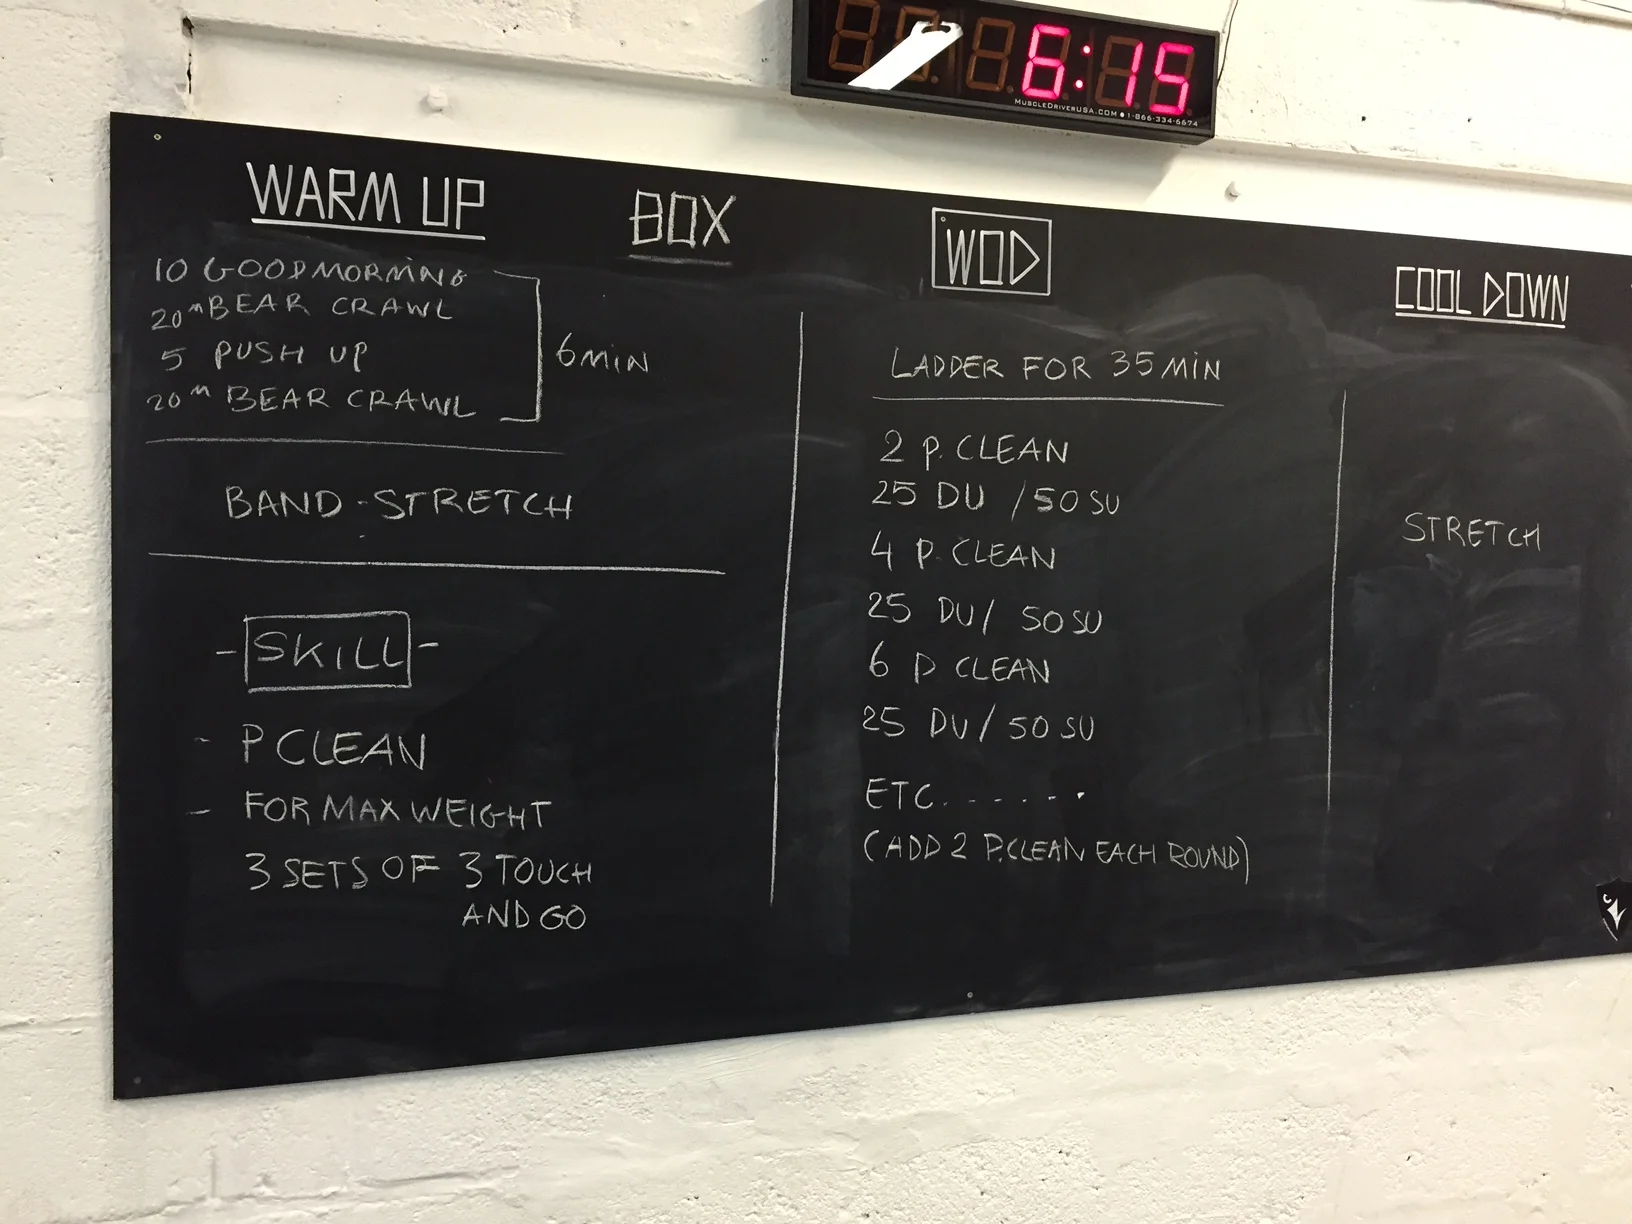 6:15
MUSCLEDRIVERUSA.COM ● 1-866-334-6674
WARM UP
10 GOODMORNING
20m BEAR CRAWL
5 PUSH UP
20m BEAR CRAWL
6 MIN
BAND-STRETCH
- SKILL -
- P CLEAN
- FOR MAX WEIGHT
3 SETS OF 3 TOUCH
AND GO
BOX
WOD
LADDER FOR 35 MIN
2 P. CLEAN
25 DU / 50 SU
4 P. CLEAN
25 DU / 50 SU
6 P CLEAN
25 DU / 50 SU
ETC.......
(ADD 2 P.CLEAN EACH ROUND)
COOL DOWN
STRETCH